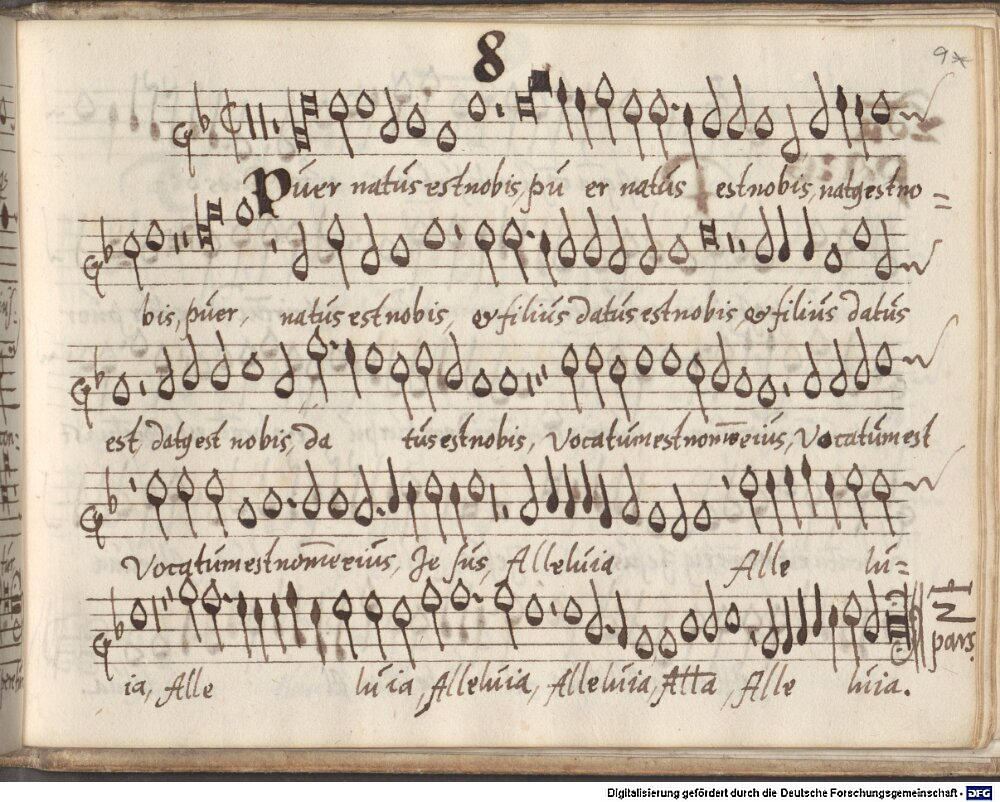 8
9
Püer natüs est nobis, pü er natüs est nobis, natꝯ est no=
bis, püer, natüs est nobis, & filiüs datüs est nobis, & filiüs datüs
est, datꝯ est nobis, da tüs est nobis, Vocatüm est nom̄ eiüs, Vocatüm est
Vocatüm est nom̄ eiüs, Je süs, Allelüia Alle lü=
ia, Alle lüia, Allelüia, Allelüia, Alla, Alle lüia.
pars.
Digitalisierung gefördert durch die Deutsche Forschungsgemeinschaft - DFG